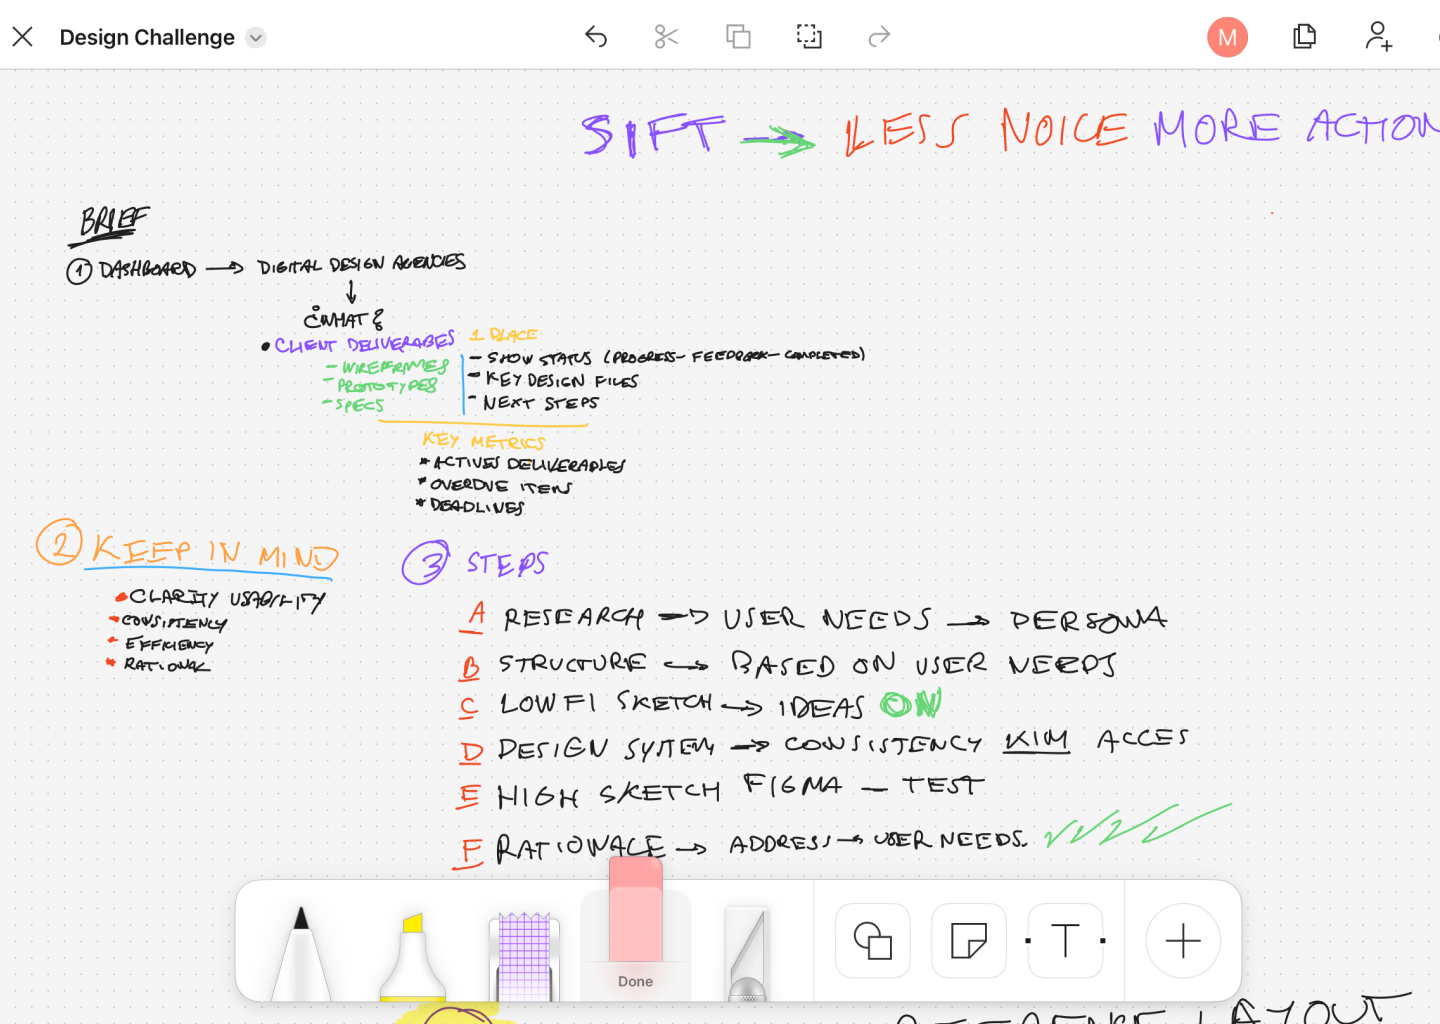 Design Challenge
M
SIFT → LESS NOICE MORE ACTION
BRIEF
① DASHBOARD → DIGITAL DESIGN AGENCIES
↓
¿WHAT?
• CLIENT DELIVERABES
- WIREFRAMES
- PROTOTYPES
- SPECS
1 PLACE
- SHOW STATUS (PROGRESS - FEEDBACK - COMPLETED)
- KEY DESIGN FILES
- NEXT STEPS
KEY METRICS
* ACTIVES DELIVERABLES
* OVERDUE ITEMS
* DEADLINES
② KEEP IN MIND
• CLARITY USABILITY
* CONSISTENCY
* EFFICIENCY
* RATIONAL
③ STEPS
A RESEARCH → USER NEEDS → PERSONA
B STRUCTURE → BASED ON USER NEEDS
C LOW FI SKETCH → IDEAS ON
D DESIGN SYSTEM → CONSISTENCY KIM ACCES
E HIGH SKETCH FIGMA - TEST
F RATIONALE → ADDRESS → USER NEEDS.
Done
T
LAYOUT